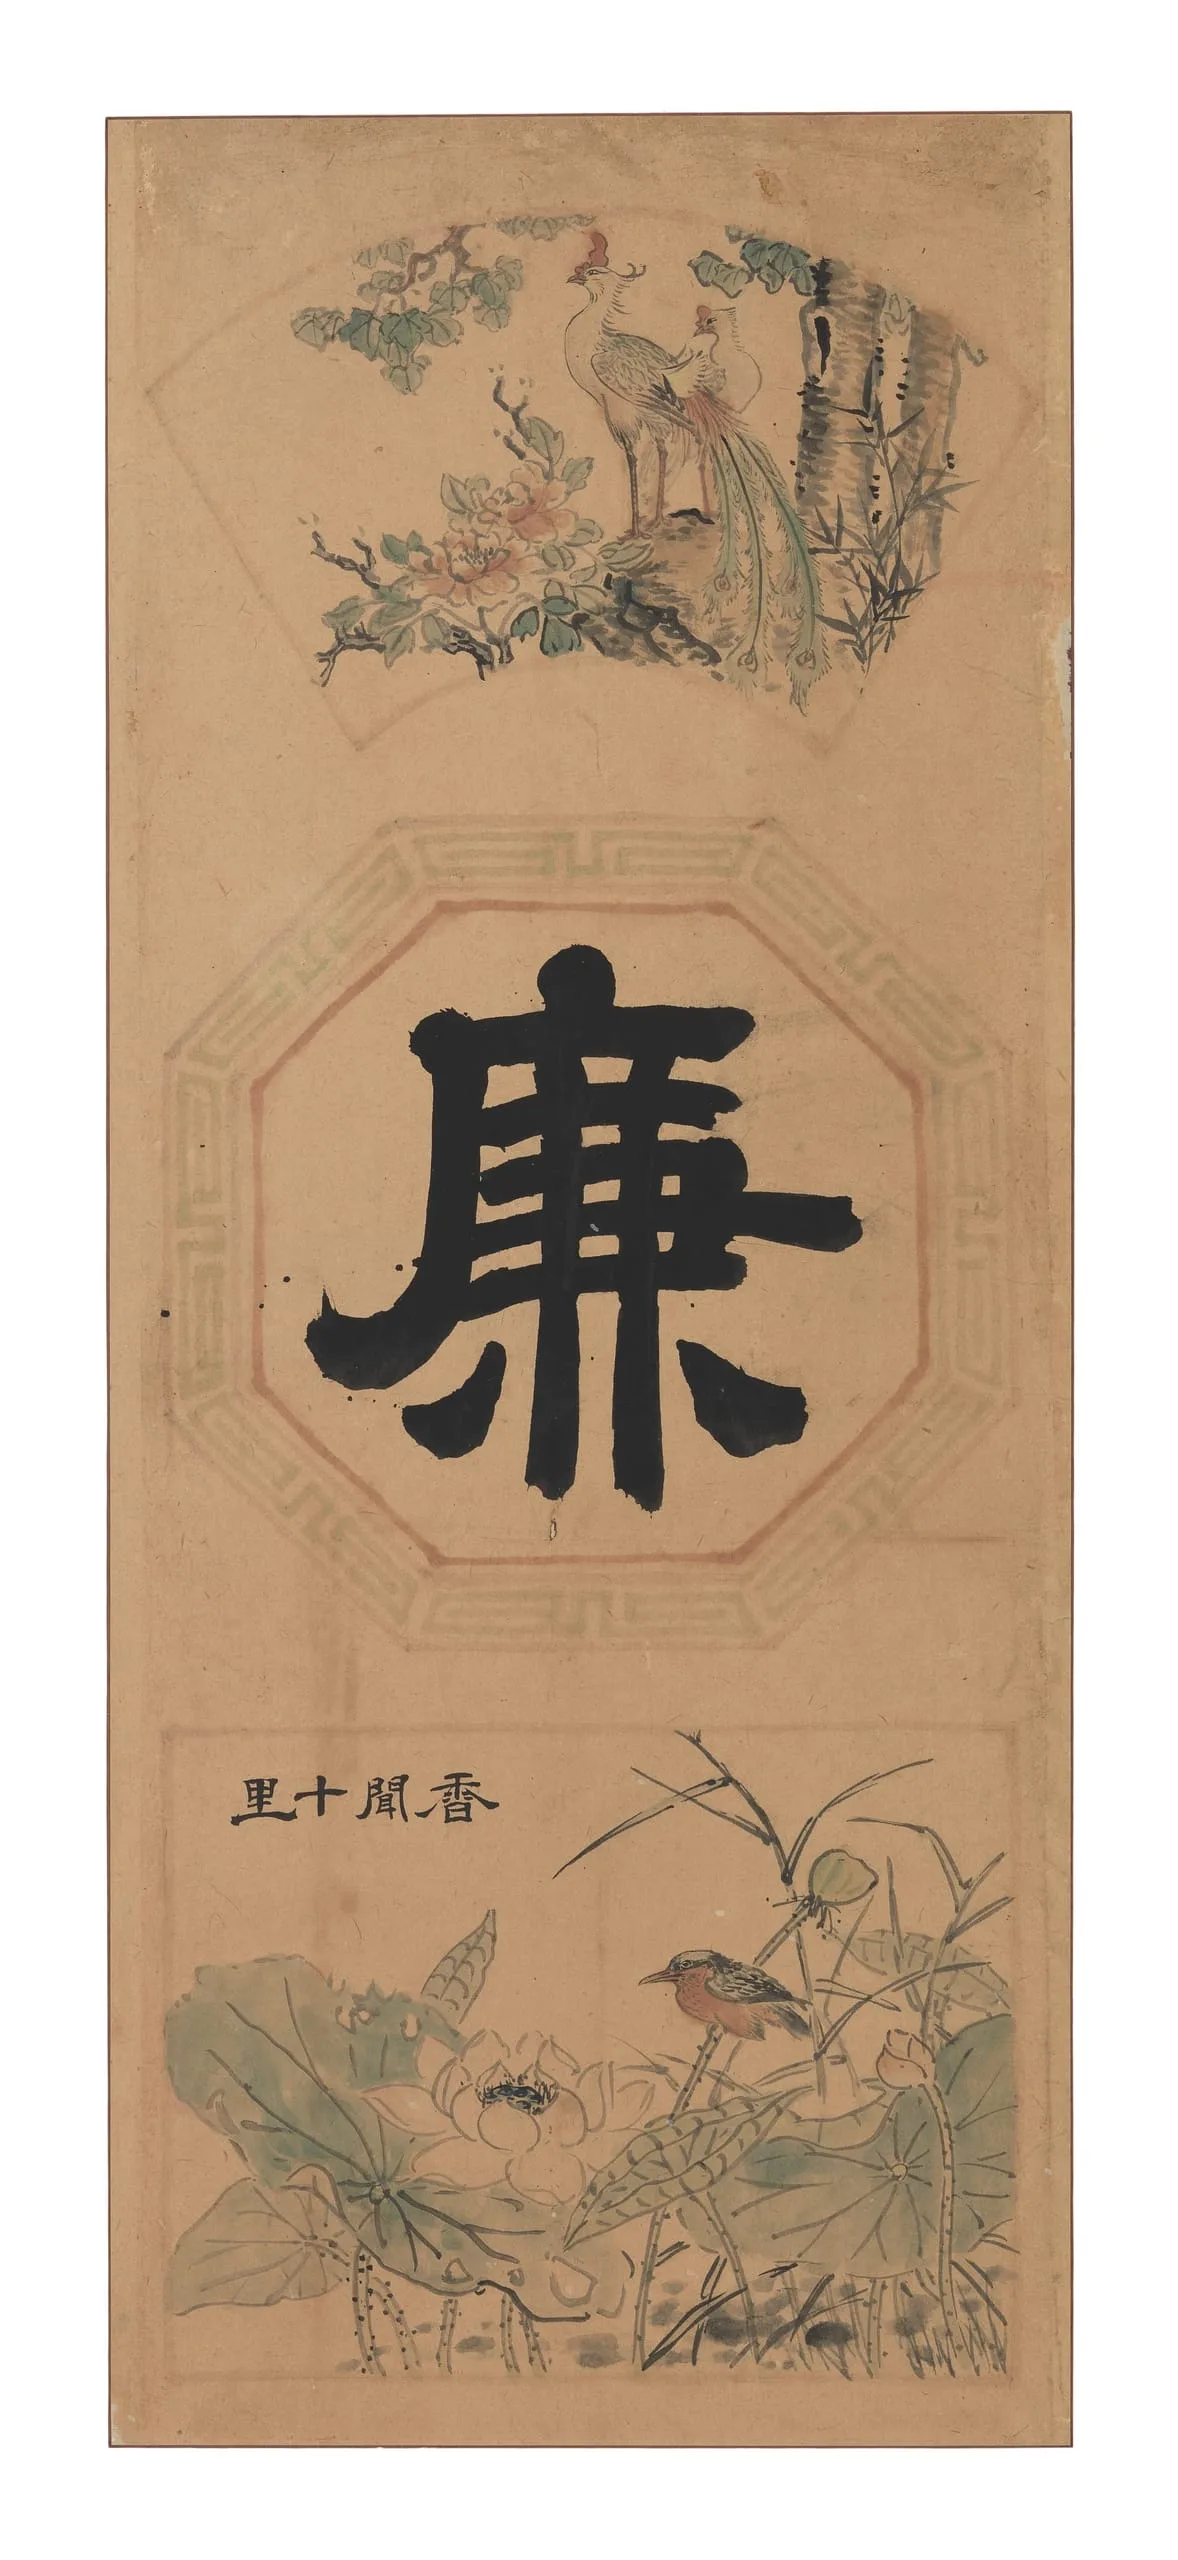 廉
香聞十里